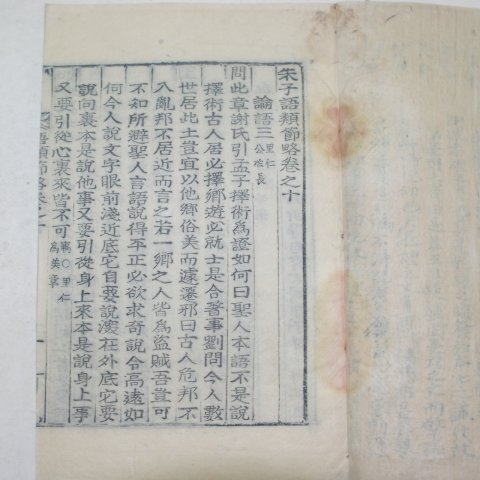 朱子語類節略卷之十
論語三 里仁 公冶長
問此章謝氏引孟子擇術爲證如何曰聖人本語不是說
擇術古人居必擇鄕遊必就士是合著事劉問今人數
世居此土豈宜以他鄕俗美而遽遷邪曰古人危邦不
入亂邦不居近而言之若一鄕之人皆爲盜賊吾豈可
不知所避聖人言語說得平正必欲求奇說令高遠如
何今人說文字眼前淺近底它自要說深在外底它要
說向裏本是說他事又要引從身上來本是說身上事
又要引從心裏來皆不可 㝢○里仁爲美章